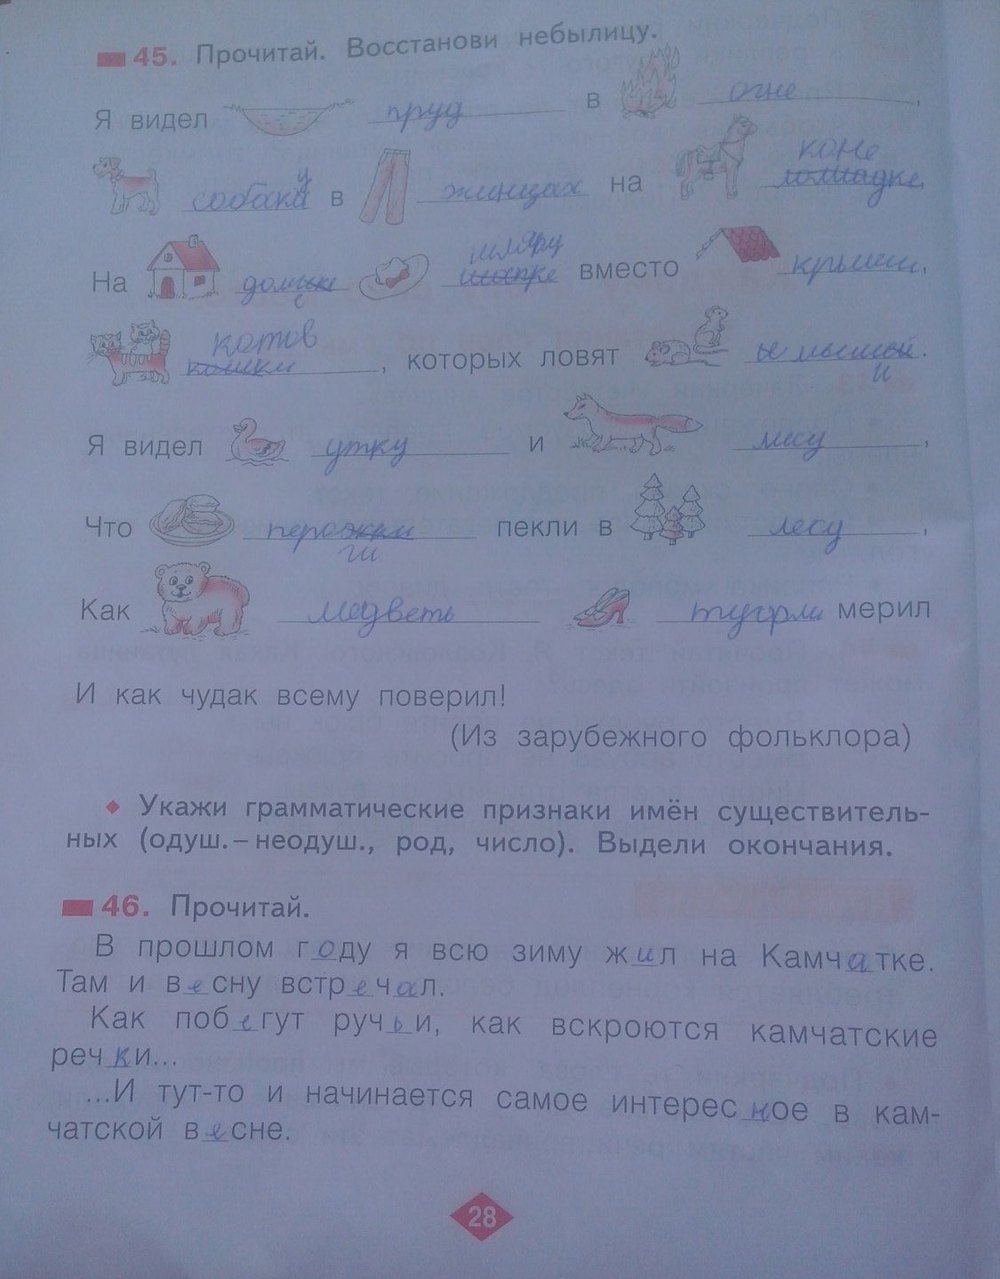 45. Прочитай. Восстанови небылицу.
Я видел пруд в огне,
собаку в жинцах на коне лошадке,
На домике шляпу шапке вместо крыши,
котов кошки, которых ловят мыши.
Я видел утку и лису,
Что перожки ги пекли в лесу,
Как медветь туфли мерил
И как чудак всему поверил!
(Из зарубежного фольклора)
◆ Укажи грамматические признаки имён существитель-
ных (одуш.–неодуш., род, число). Выдели окончания.
46. Прочитай.
В прошлом году я всю зиму жил на Камчатке.
Там и весну встречал.
Как побегут ручьи, как вскроются камчатские
речки...
...И тут-то и начинается самое интересное в кам-
чатской весне.
28